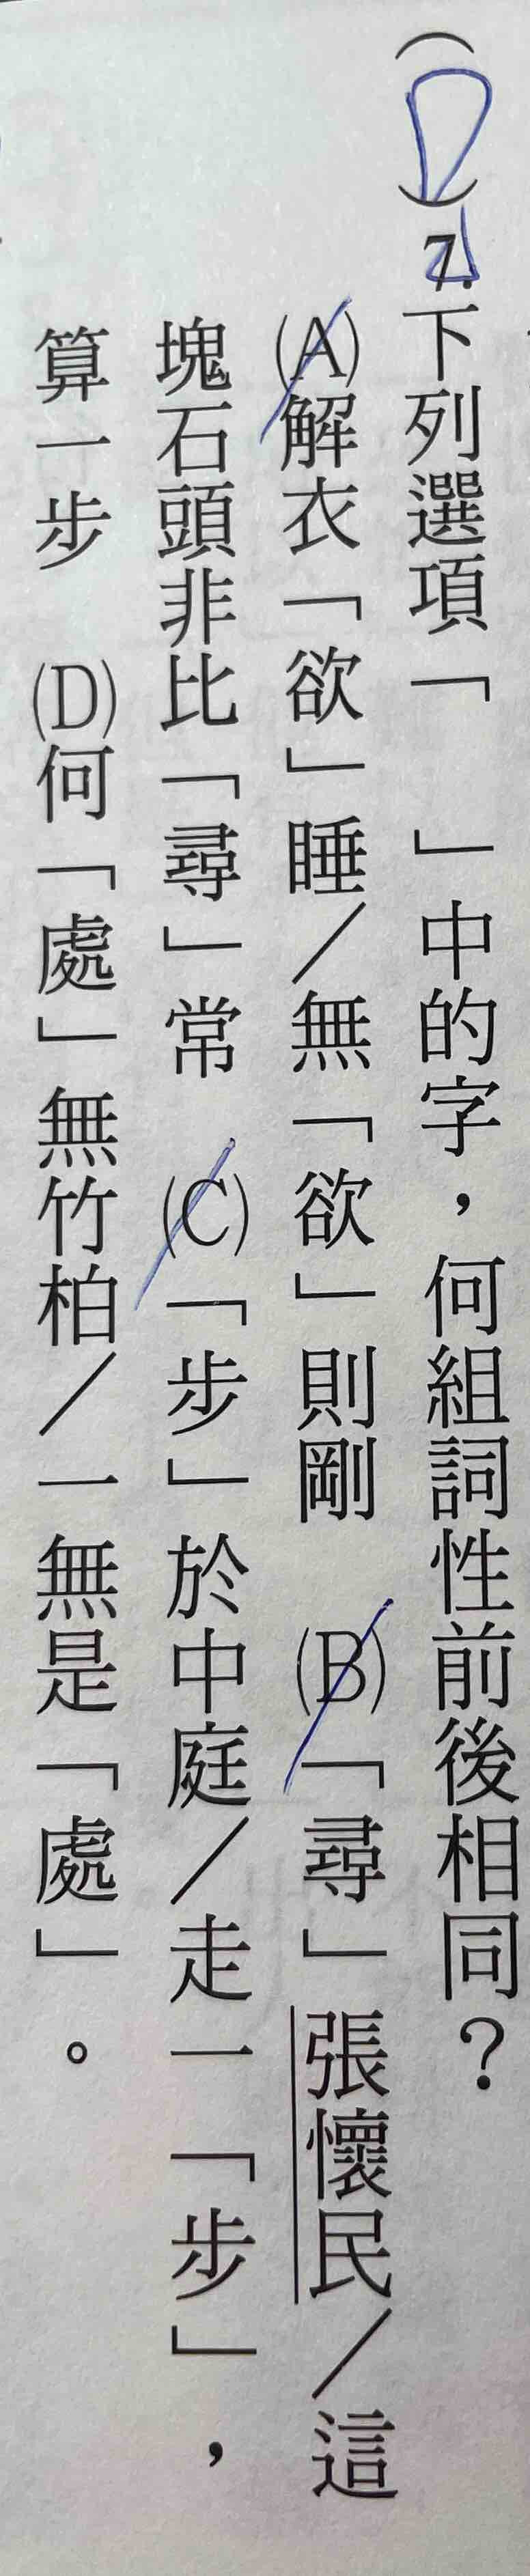 (D)7.下列選項「　」中的字，何組詞性前後相同？
(A)解衣「欲」睡／無「欲」則剛　(B)「尋」張懷民／這
塊石頭非比「尋」常　(C)「步」於中庭／走一「步」，
算一步　(D)何「處」無竹柏／一無是「處」。